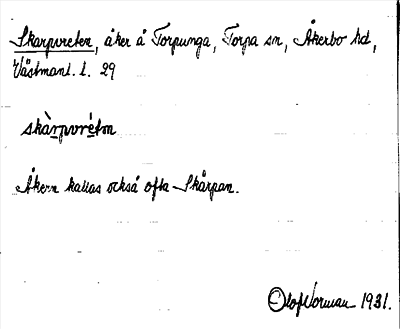 Skarpvreten, åker å Torpunga, Torpa sn, Åkerbo hd,
Västmanl. l. 29
skàrpvrétn
Åkern kallas också ofta Skårpan.
Olof Norman 1931.